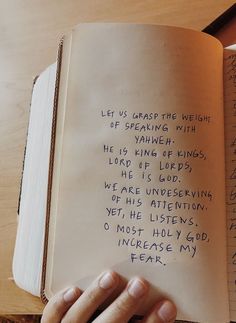 LET US GRASP THE WEIGHT
OF SPEAKING WITH
YAHWEH.
HE IS KING OF KINGS,
LORD OF LORDS,
HE IS GOD.
WE ARE UNDESERVING
OF HIS ATTENTION.
YET, HE LISTENS.
O MOST HOLY GOD,
INCREASE MY
FEAR.